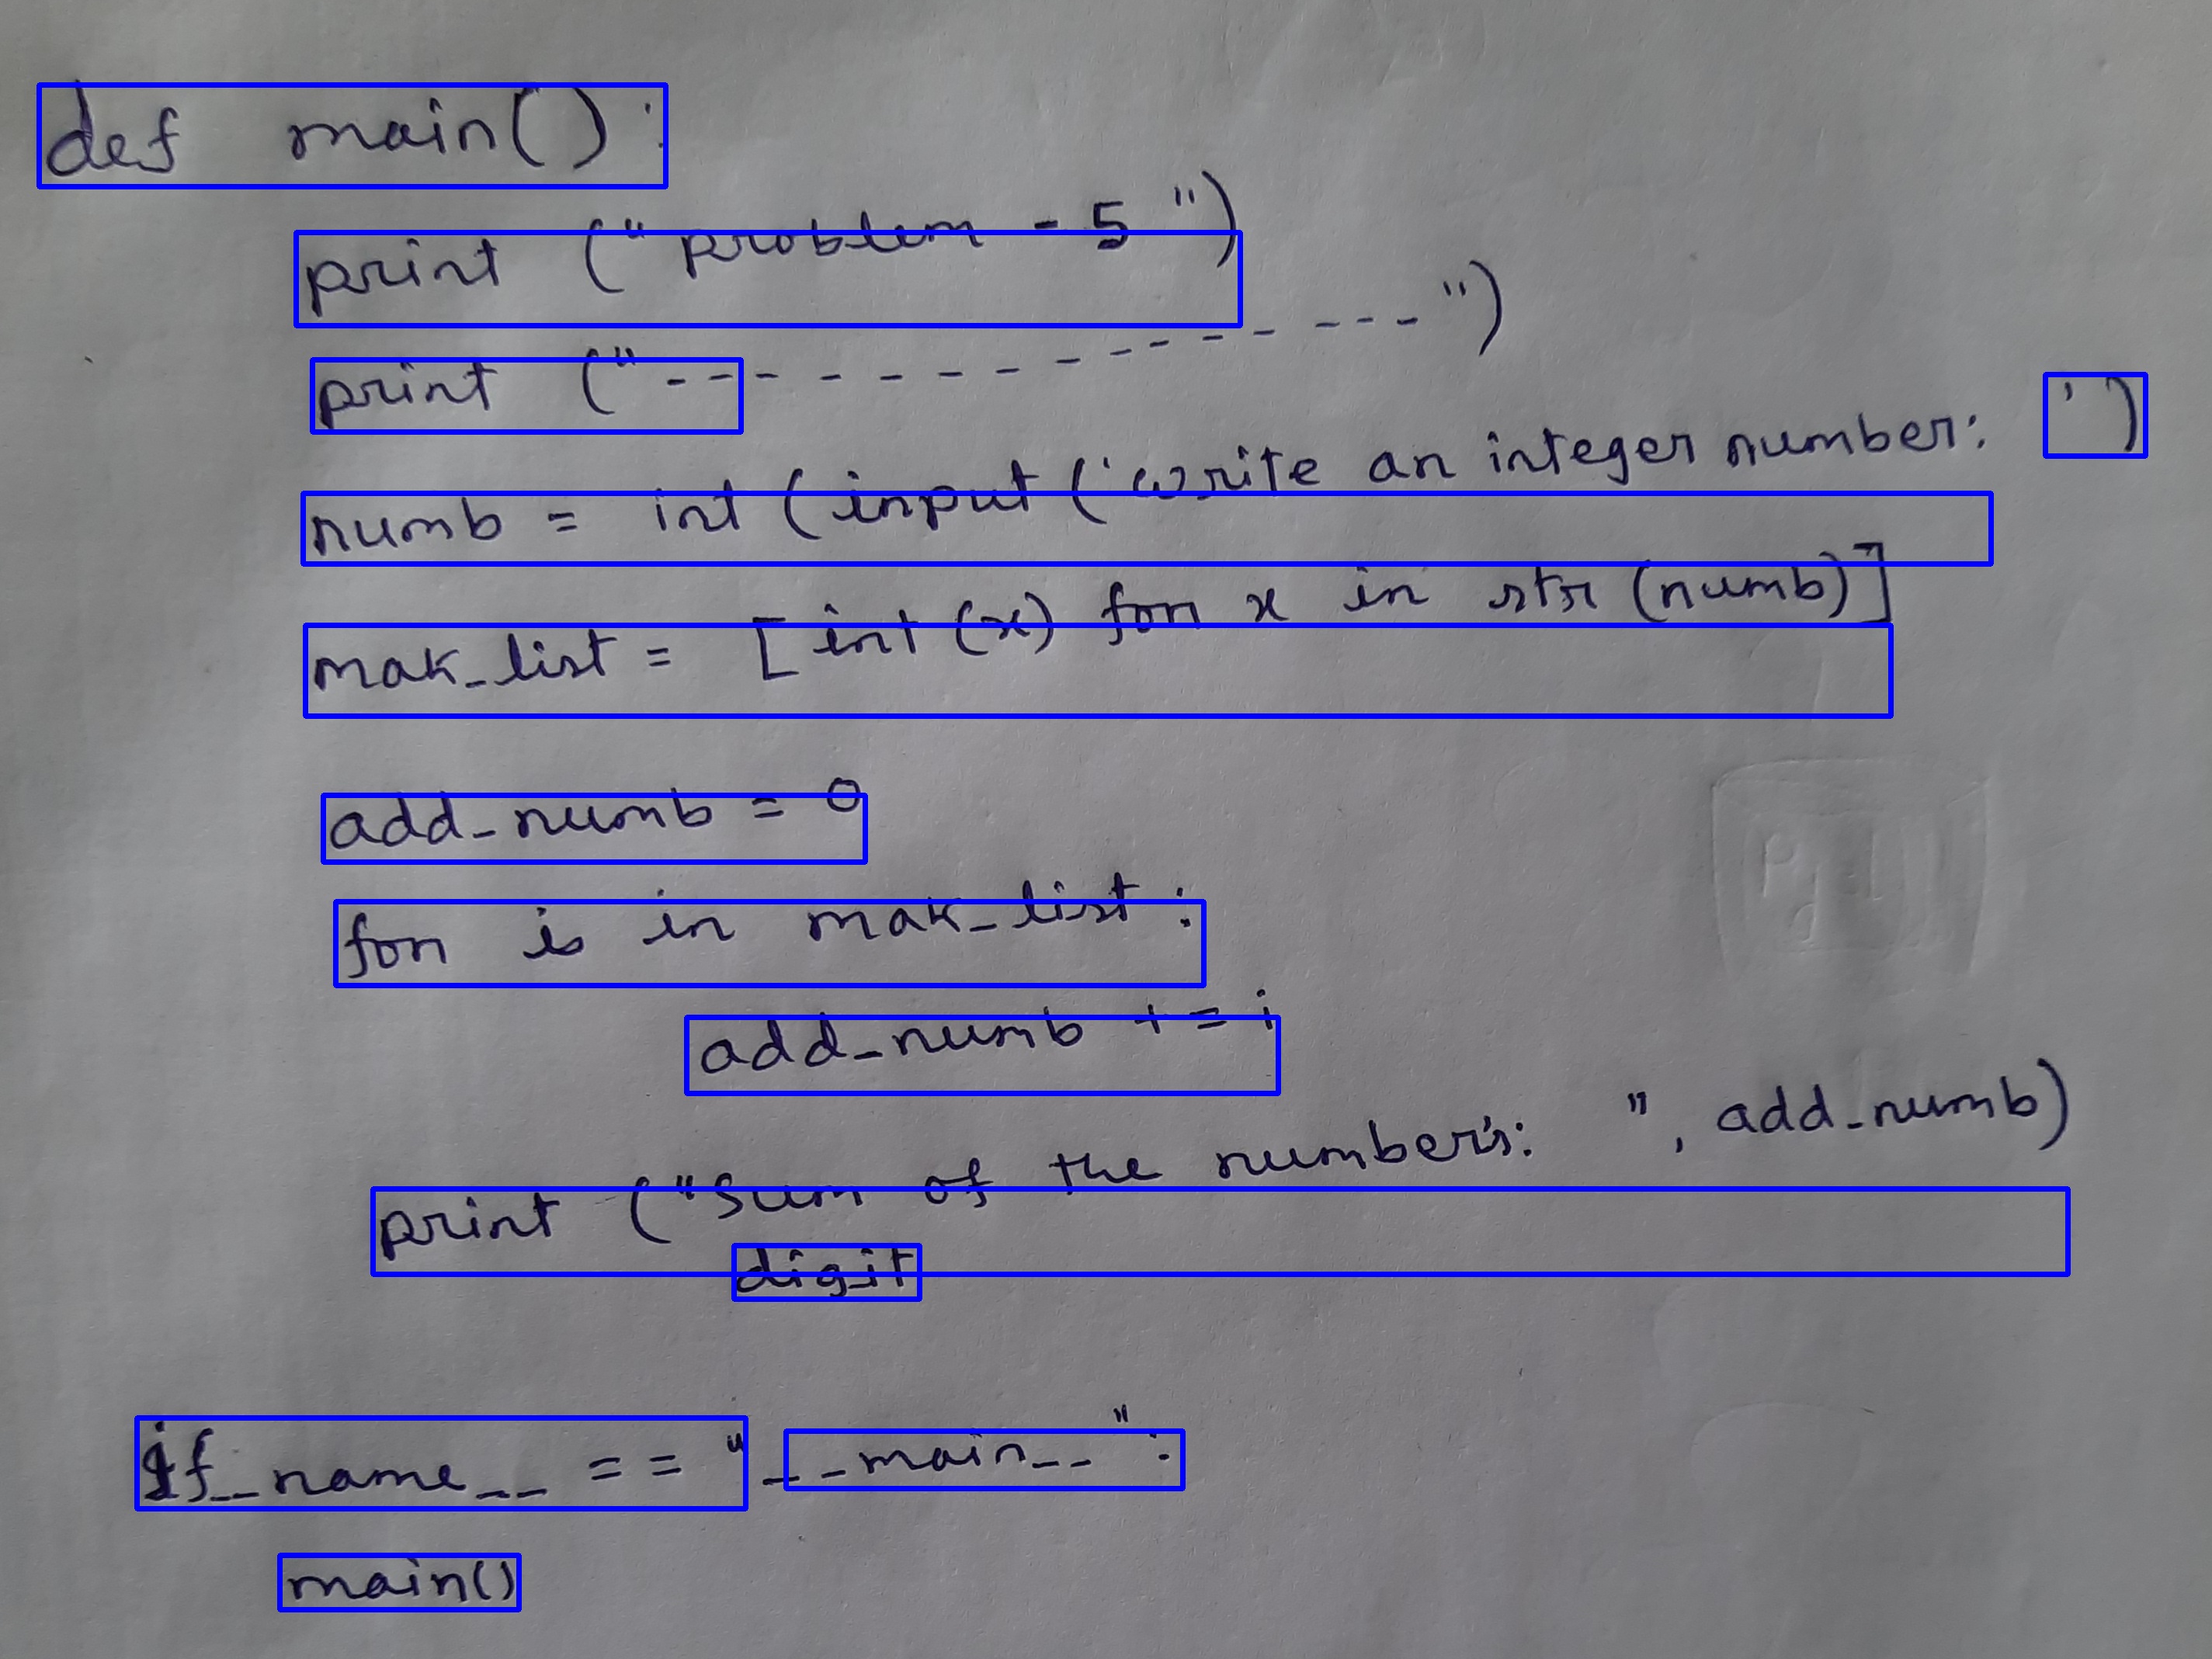 def main():
print ("problem - 5 ")
print ("--- - - - - - - - - - - ---")
numb = int (input ('write an integer number: ')
mak_list = [int (x) for x in str (numb)]
add_numb = 0
for is in mak_list :
add_numb += i
print ("sum of the number's: ", add_numb)
digit
if__name__ == "__main__":
main()